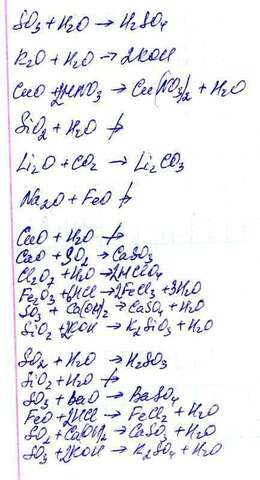 SO₃ + H₂O → H₂SO₄
K₂O + H₂O → 2KOH
CuO + 2HNO₃ → Cu(NO₃)₂ + H₂O
SiO₂ + H₂O ↛
Li₂O + CO₂ → Li₂CO₃
Na₂O + FeO ↛
CuO + H₂O ↛
CaO + SO₂ → CaSO₃
Cl₂O₇ + H₂O → 2HClO₄
Fe₂O₃ + 6HCl → 2FeCl₃ + 3H₂O
SO₃ + Ca(OH)₂ → CaSO₄ + H₂O
SiO₂ + 2KOH → K₂SiO₃ + H₂O
SO₂ + H₂O → H₂SO₃
SiO₂ + H₂O ↛
SO₃ + BaO → BaSO₄
FeO + 2HCl → FeCl₂ + H₂O
SO₂ + Ca(OH)₂ → CaSO₃ + H₂O
SO₃ + 2KOH → K₂SO₄ + H₂O